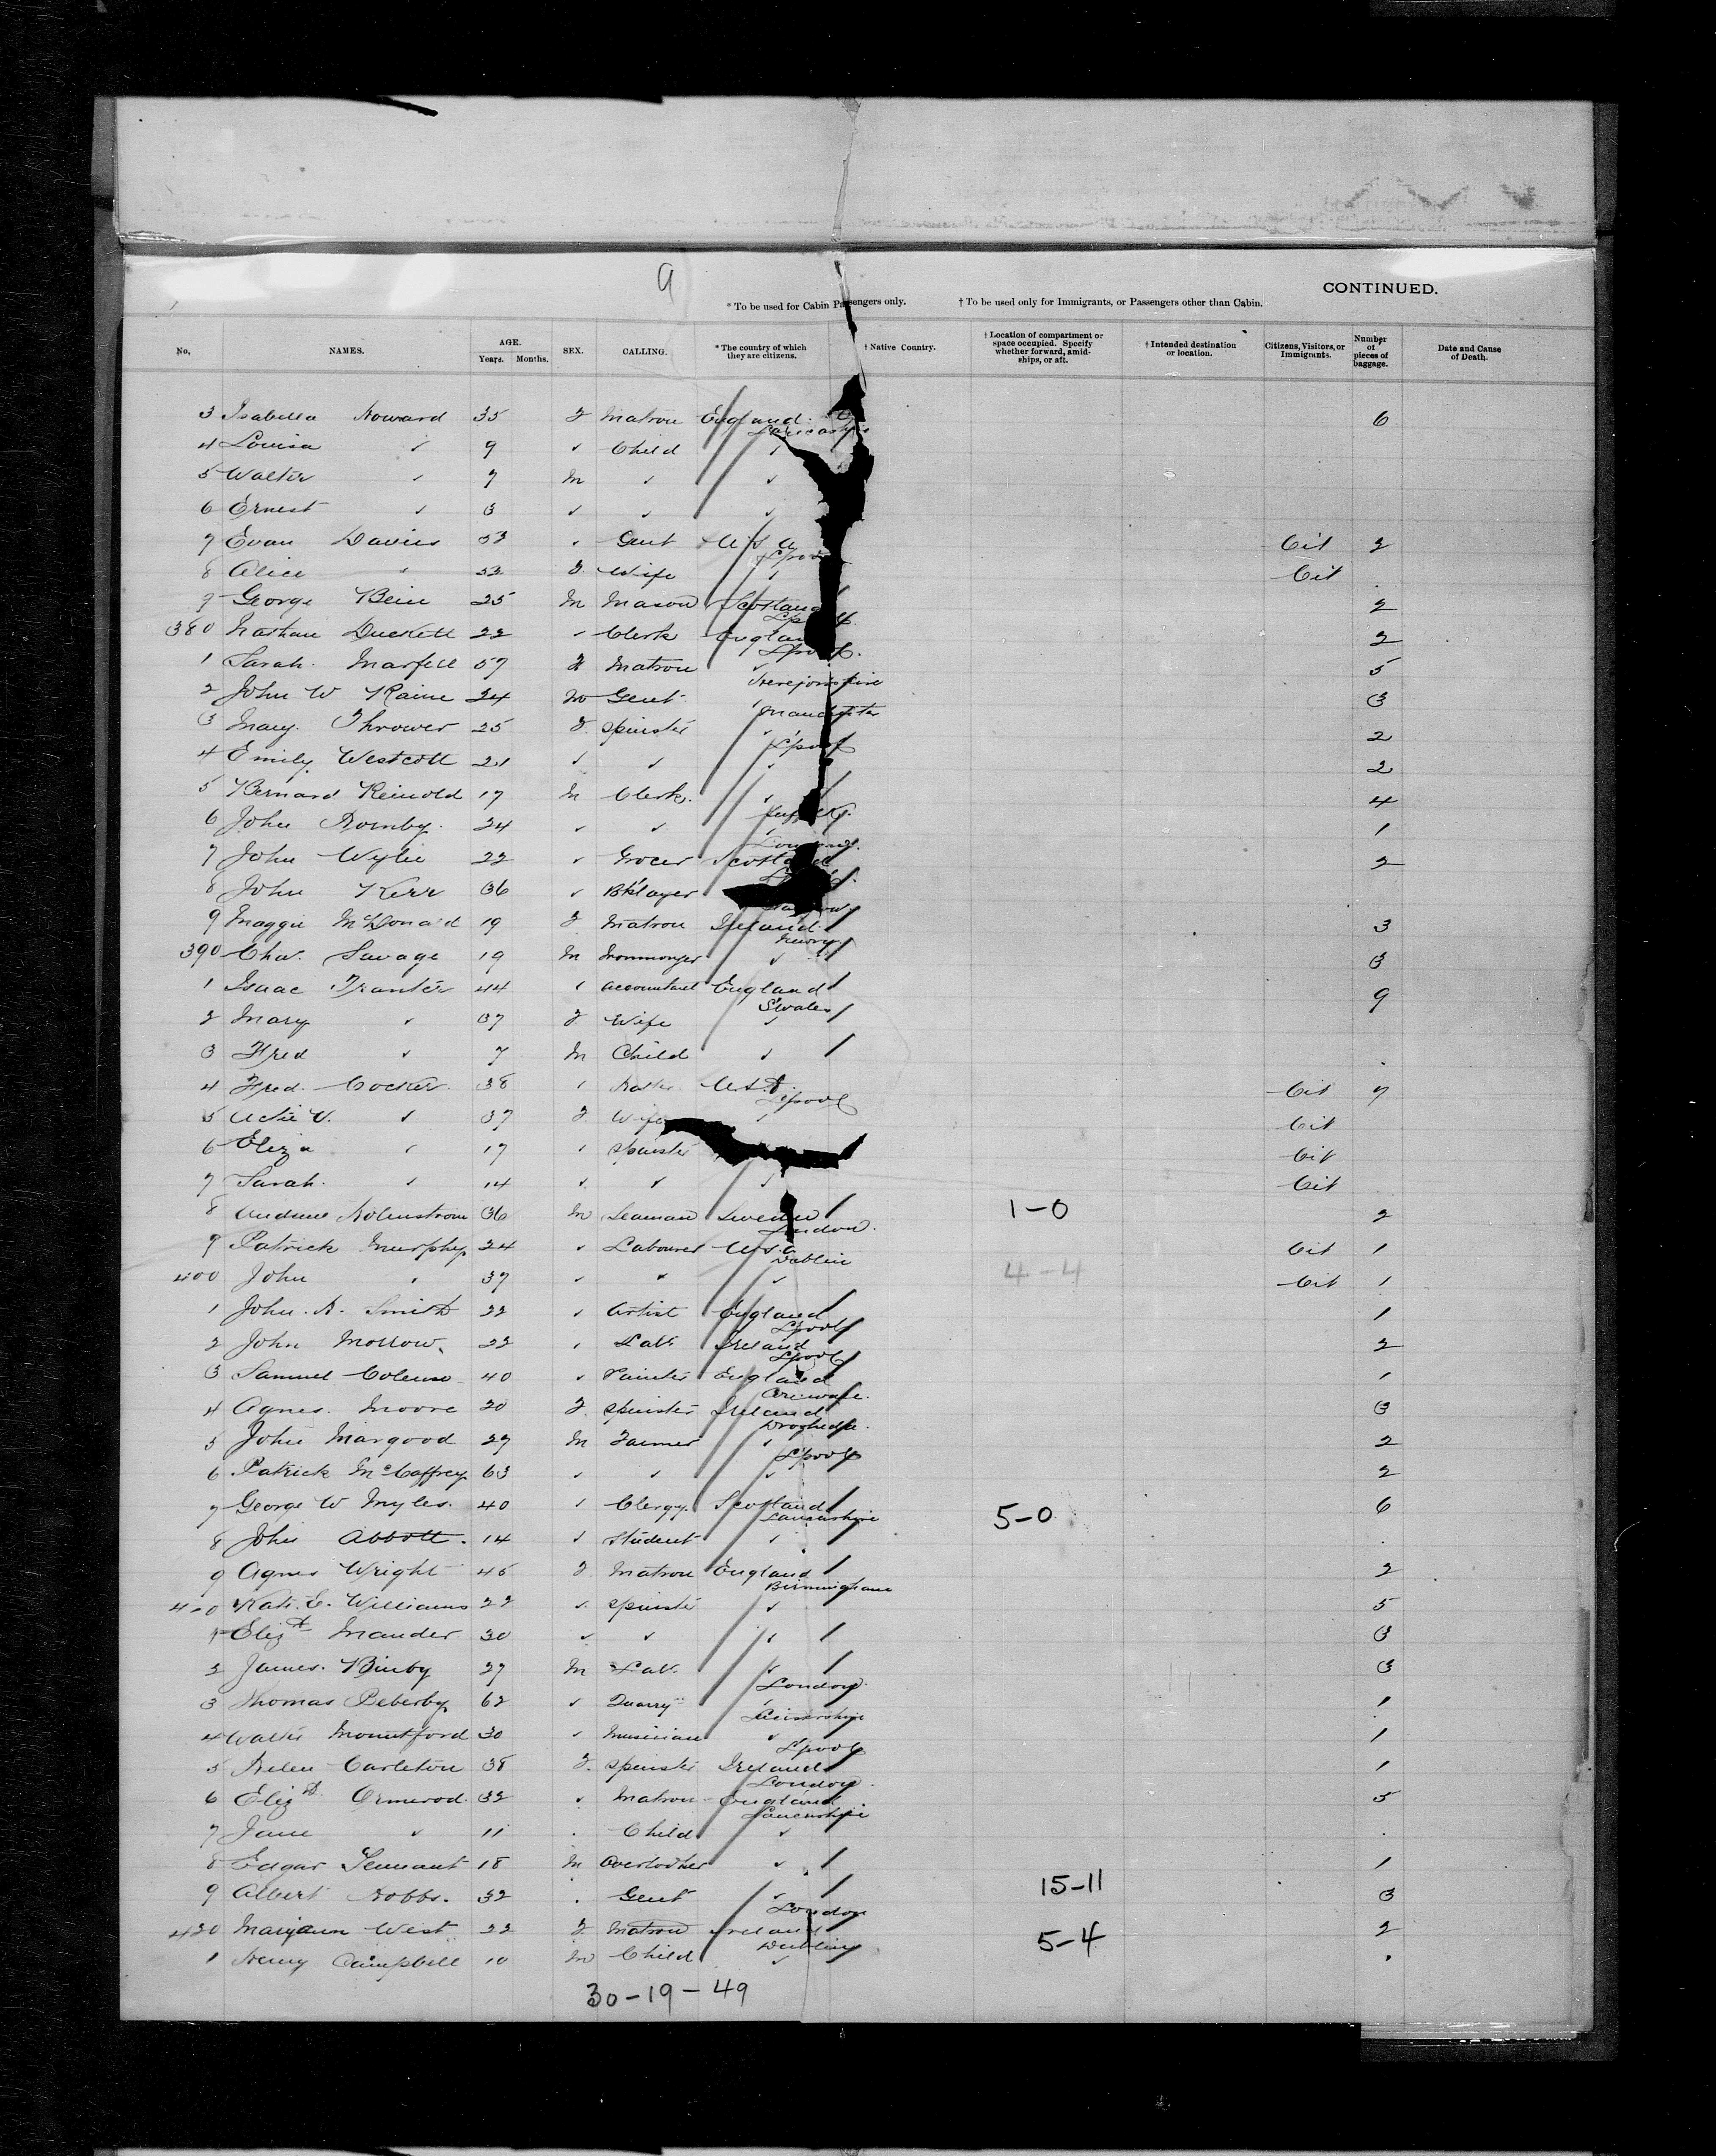 9
CONTINUED.
* To be used for Cabin Passengers only. † To be used only for Immigrants, or Passengers other than Cabin.
No. NAMES. AGE. Years. Months. SEX. CALLING. * The country of which they are citizens. † Native Country. † Location of compartment or space occupied. Specify whether forward, amidships, or aft. † Intended destination or location. Citizens, Visitors, or Immigrants. Number of pieces of baggage. Date and Cause of Death.
3 Isabella Howard 35 F Matron England 6
4 Louisa " 9 " Child "
5 Walter " 7 M " "
6 Ernest " 3 " " "
7 Evan Davies 53 " Gent U S A Cit 2
L'pool
8 Alice " 52 F Wife " Cit
9 George Bein 25 M Mason Scotland 2
380 Nathan Duckett 22 " Clerk England 2
L'pool
1 Sarah Marfell 57 F Matron " 5
Herefordshire
2 John W Raine 24 M Gent " 3
Manchester
3 Mary Thrower 25 F Spinster " 2
L'pool
4 Emily Westcott 21 " " " 2
5 Bernard Reinold 17 M Clerk " 4
6 John Hornby 24 " " " 1
7 John Wylie 22 " Grocer Scotland 2
8 John Kerr 36 " Bklayer
9 Maggie McDonald 19 F Matron Ireland 3
Newry
390 Chas. Savage 19 M Ironmonger " 3
1 Isaac Tranter 44 " Accountant England 9
S Wales
2 Mary " 37 F Wife "
3 Fred " 7 M Child "
4 Fred. Cocker 38 " U.S.A. Cit 7
L'pool
5 V. " 37 F Wife " Cit
6 Eliza " 17 " Spinster Cit
7 Sarah " 14 " " " Cit
8 Holmstrom 36 M Seaman Sweden 1-0 2
London
9 Patrick Murphy 24 " Labourer U.S.A. Cit 1
Dublin
400 John " 37 " " " 4-4 Cit 1
1 John H. Smith 22 " Artist England 1
L'pool
2 John Morrow 22 " Lab. Ireland 2
L'pool
3 Samuel Colenso 40 " Painter England 1
4 Agnes Moore 20 F Spinster Ireland 3
Drogheda
5 John Margood 27 M Farmer " 2
L'pool
6 Patrick McCaffrey 63 " " " 2
7 George W Myles 40 " Clergy. Scotland 5-0 6
Lancashire
8 John Abbott 14 " Student "
9 Agnes Wright 45 F Matron England 2
Birmingham
410 Kate E. Williams 22 " Spinster " 5
1 Elizth Mander 30 " " " 3
2 James Binby 27 M Lab. " 3
London
3 Thomas Peberby 62 " Quarryn " 1
4 Walter Mountford 30 " Musician " 1
L'pool
5 Helen Carleton 38 F Spinster Ireland 1
London
6 Elizth Ormerod 32 " Matron England 5
Lancashire
7 Jane " 11 " Child "
8 Edgar Tennant 18 M Overlooker " 1
9 Albert Hobbs. 32 " Gent " 15-11 3
London
420 Maryann West 22 F Matron Ireland 5-4 2
Dublin
1 Henry Campbell 10 M Child "
30-19-49